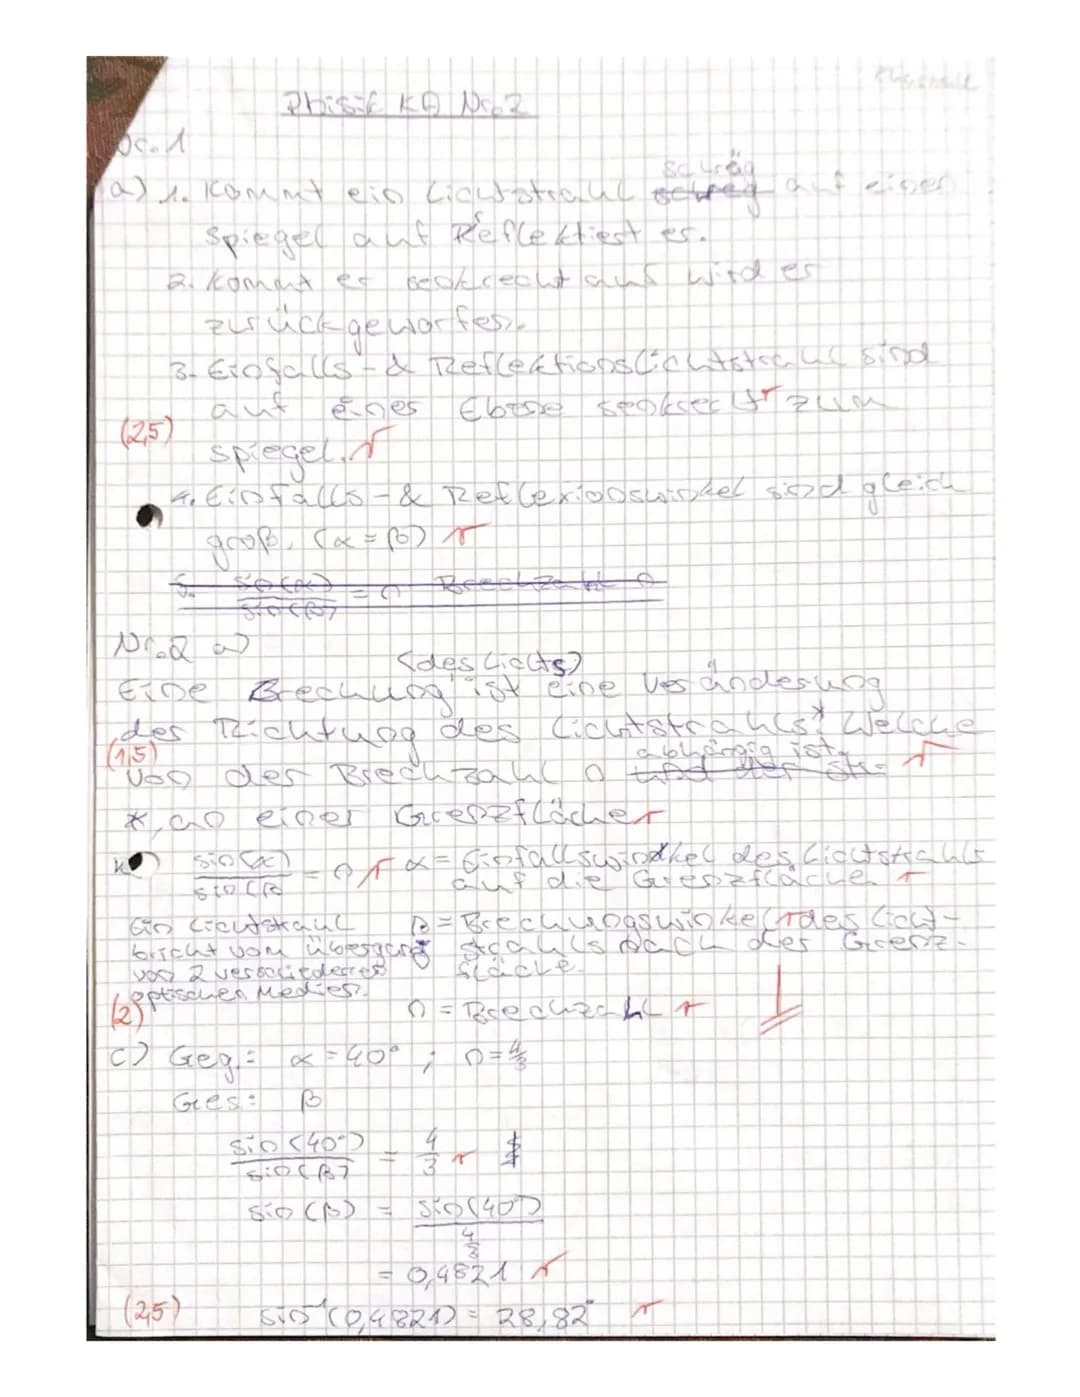 Phisik KA Nr. 2
Nr. 1
schräg
a) 1. Kommt ein Lichtstrahl schreg auf einen
Spiegel auf Reflektiert er.
2. Kommt er senkrecht auf wird er
zurückgeworfen.
3. Einfalls-& Reflektionslichtstrahl sind
auf einer Ebene senkrecht zum
(2,5)
spiegel.
4. Einfalls-& Reflexionswinkel sind gleich
groß. (α=β)
5. sin(α)/sin(β) = n Brechzahl n
Nr. 2 a)
(des Lichts)
Eine Brechung ist eine Veränderung
der Richtung des Lichtstrahls* Welche
(1,5)
abhängig ist.
von der Brechzahl n und der
*, an einer Grenzfläche
sin(α)/sin(β = n α = Einfallswinkel des Lichtstrahls
auf die Grenzfläche
Ein Lichtstrahl β = Brechungswinkel des Licht-
bricht vom übergang strahls nach der Grenz-
von 2 verschiedenen fläche.
optischen Medien.
(2) n = Brechzahl
c) Geg.: α = 40° ; n = 4/3
Ges: β
sin(40°)/sin(β) = 4/3
sin(β) = sin(40°)/(4/3)
= 0,4821
(2,5) sin⁻¹(0,4821) = 28,82°